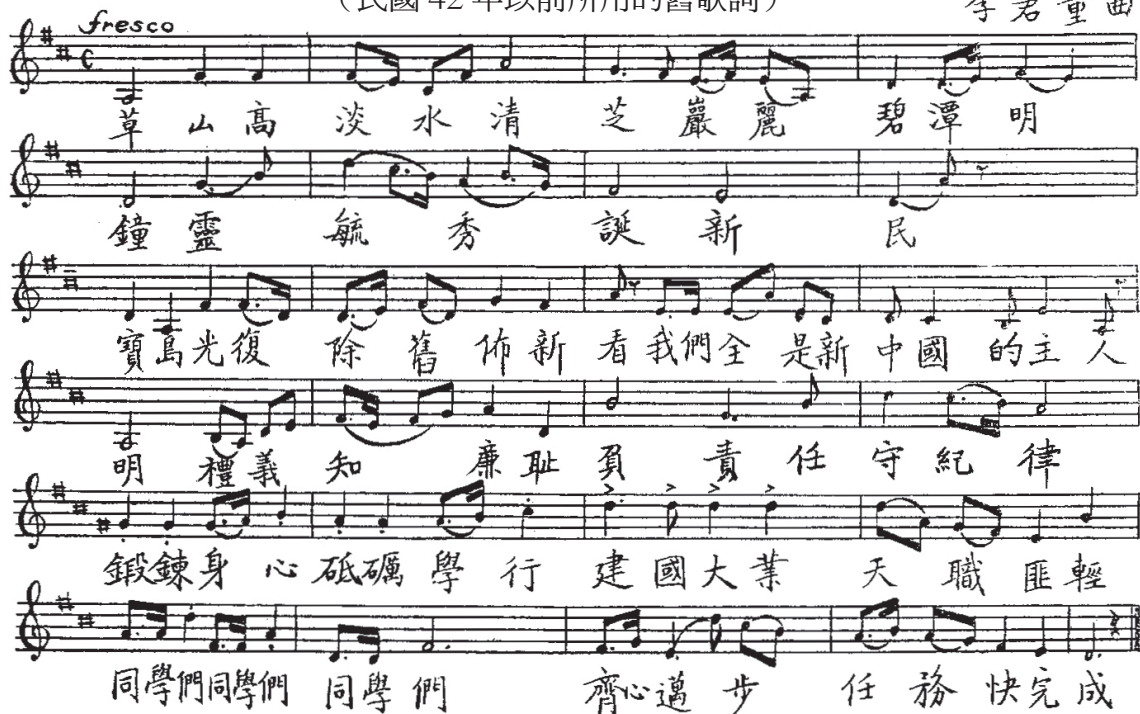 (民國 42 年以前所用的舊歌詞)
李君重曲
fresco
草山高 淡水清 芝巖麗 碧潭明
鐘靈毓秀誕新民
寶島光復 除舊佈新 看我們全是新中國的主人
明禮義 知廉恥 負責任 守紀律
鍛鍊身心 砥礪學行 建國大業 天職匪輕
同學們同學們 同學們 齊心邁步 任務快完成